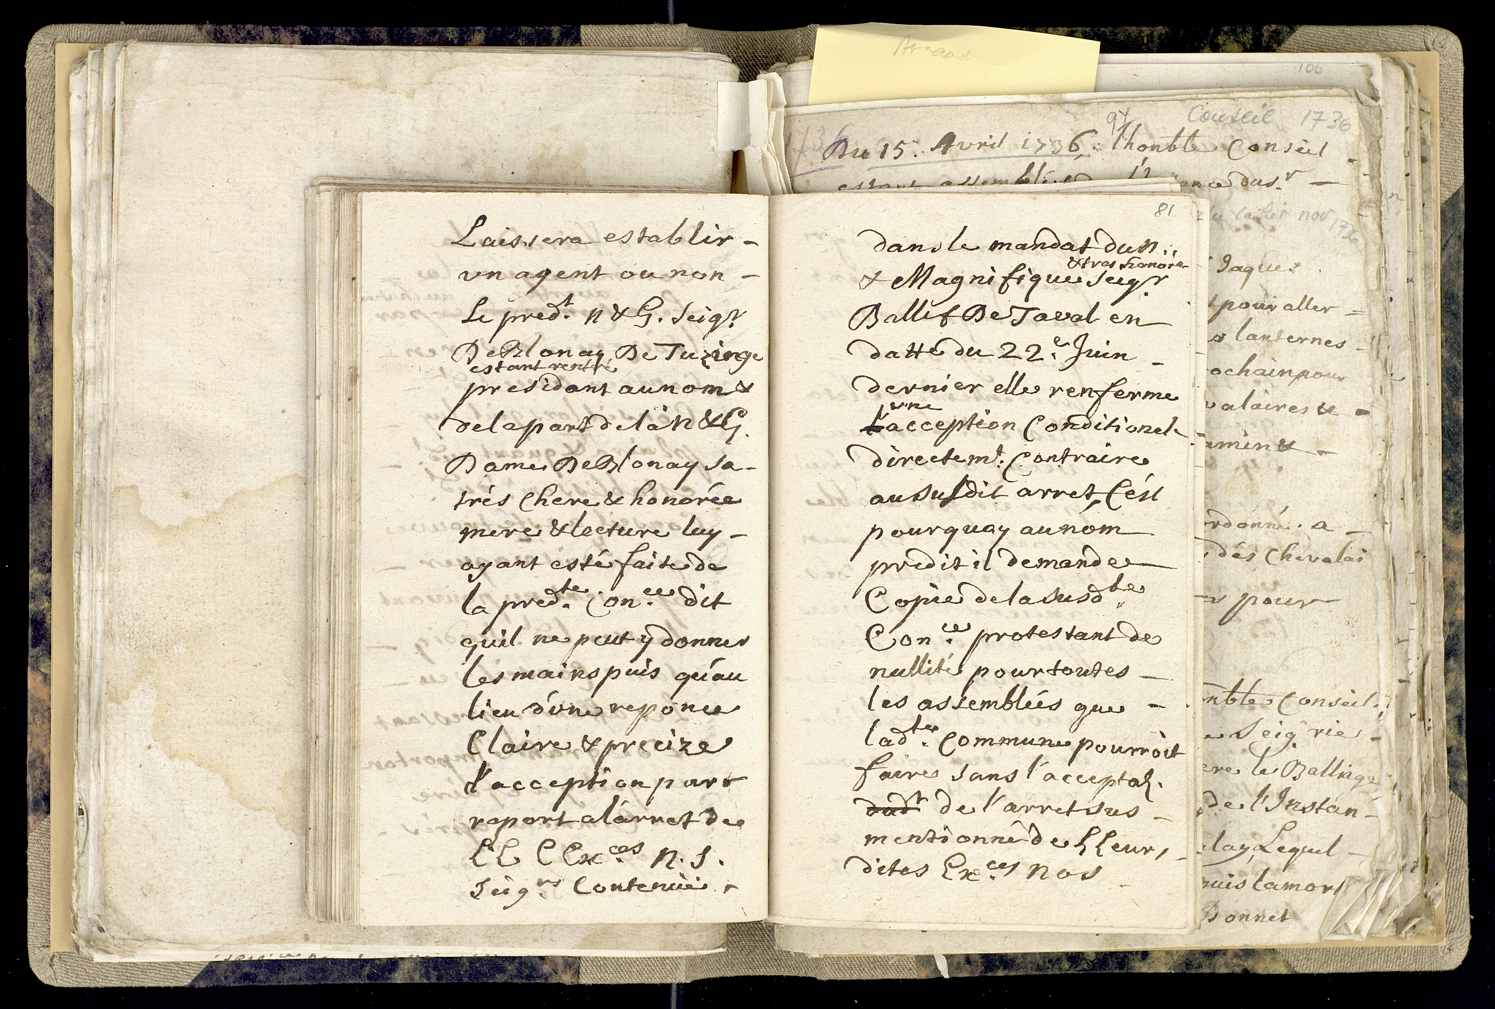 Laissera establir -
un agent ou non -
Le pred.t N & G. Seigr
De Blonay De Tuzinge
estant rentré
presidant au nom &
de la part de la N & G.
Dame De Blonay sa -
trés chere & honorée
mere & lecture luy -
ayant esté faite de
la pred.te Con.ce dit
quil ne peut y donner
les mains puis qu'au
lieu d'une reponce
Claire & precize
l'acception par
raport a l'arret de
LL EExces N. S.
Seigrs Contenüe
81
dans le mandat du N..
& tres honoré
& Magnifique Seigr
Ballif De Taval en
datte du 22e Juin -
dernier elle renferme
une
acception Conditionele
directemt. Contraire
au susdit arret, C'ést
pourquay au nóm
predit il demande
Copie de la susdte
Con.ce protestant de
nullité pour toutes -
les assemblées que -
ladte. Commune pourroit
faire sans l'acceptaõn.
dudt de l'arret sus -
mentionné de LLeurs
dites Exces Nos
Arraud
106
97 Conseil 1736
Du 15. Avril 1736. l'honble Conseil
estant assemblé
nov 1736
Jaques
pour aller
lanternes -
ochain pour
valaires &
ament
ordonné. a -
des Chevalai
pour
nble Conseil.
Seigrie
le Ballinge
de l'Instan-
lay Lequel
puis la mort
Bonnet